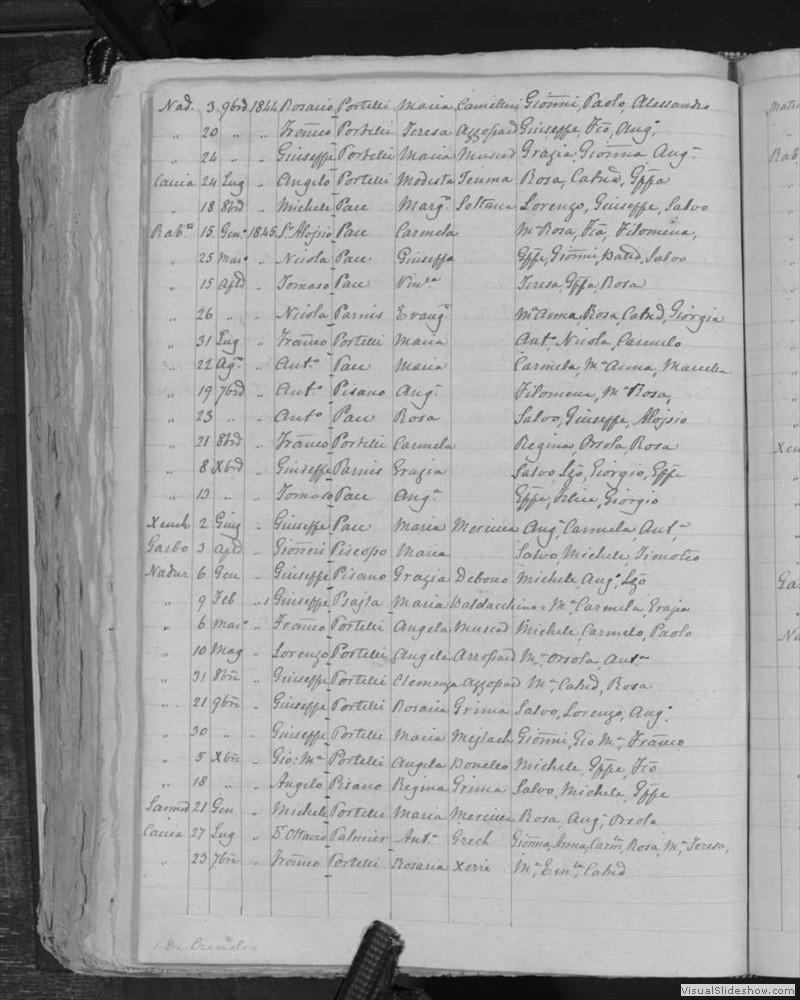 Nad. 3 9bre 1844 Rosario Portelli Maria Camilleri Gioñni, Paolo, Alessandro
„ 20 „ „ Frañco Portelli Teresa Azzopard Giuseppe, Frõ, Aug.ª
„ 24 „ „ Giuseppe Portelli Maria Muscad Grazia, Gioñna, Aug.ª
Caccia 24 Lug „ Angelo Portelli Modesta Teuma Rosa, Catnã, Gppa
„ 18 8bre „ Michele Pace Marg.ª Soltana Lorenzo, Giuseppe, Salvo
Rab.º 15 Gen.º 1845 S.r Alojsio Pace Carmela M.ª Rosa, Frã, Filomena,
„ 25 Mar.º „ Nicola Pace Giuseppa Gppe, Gioñni, Salvo
„ 15 Aple „ Tomaso Pace Vin.ª Teresa, Gppa, Rosa
„ 26 „ „ Nicola Parnis Evang.ª M.ª Anna, Rosa, Catnã, Giorgia
„ 31 Lug „ Frañco Portelli Maria Ant.º Nicola, Carmelo
„ 22 Ag.º „ Ant.º Pace Maria Carmela, M.ª Anna, Marcella
„ 19 7bre „ Ant.º Pisano Ang.ª Filomena, M.ª Rosa,
„ 23 „ „ Ant.º Pace Rosa Salvo, Giuseppe, Alojsio
„ 21 8bre „ Frañco Portelli Carmela Regina, Orsola, Rosa
„ 8 Xbre „ Giuseppe Parnis Grazia Salvo, Lzõ, Giorgio, Gppe
„ 13 „ „ Tomaso Pace Ang.ª Gppe, Felice, Giorgio
Xeuch 2 Giug „ Giuseppe Pace Maria Mercieca Aug.ª, Carmela, Ant.ª
Garbo 3 Aple „ Gioñni Piscopo Maria Salvo, Michele, Timoteo
Nadur 6 Gen „ Giuseppe Pisano Grazia Debono Michele, Aug.º, Lzõ
„ 9 Feb „ 1 Giuseppe Psajla Maria Baldacchino M.ª Carmela, Grazia
„ 6 Mar.º „ Frañco Portelli Angela Muscad Michele, Carmelo, Paolo
„ 10 Mag „ Lorenzo Portelli Angela Azzopard M.ª Orsola, Ant.ª
„ 31 8bre „ Giuseppe Portelli Clemenza Azzopard M.ª, Catnã, Rosa
„ 21 9bre „ Giuseppe Portelli Rosaria Grima Salvo, Lorenzo, Aug.º
„ 30 „ „ Giuseppe Portelli Maria Mejlach Gioñni, Gio M.ª Frañco
„ 5 Xbre „ Gio: M.ª Portelli Angela Bonello Michele, Gppe, Frõ
„ 18 „ „ Angelo Pisano Regina Grima Salvo, Michele, Gppe
Sannat 21 Gen „ Michele Portelli Maria Mercieca Rosa, Aug.ª Orsola
Caccia 27 Lug „ D. Ottavio Palmier Ant.ª Grech Gioñna, Anna, Carm, Rosa, M.ª Teresa,
„ 23 7bre „ Frañco Portelli Rosaria Xerri M.ª, Em.la, Catnã
VisualSlideshow.com